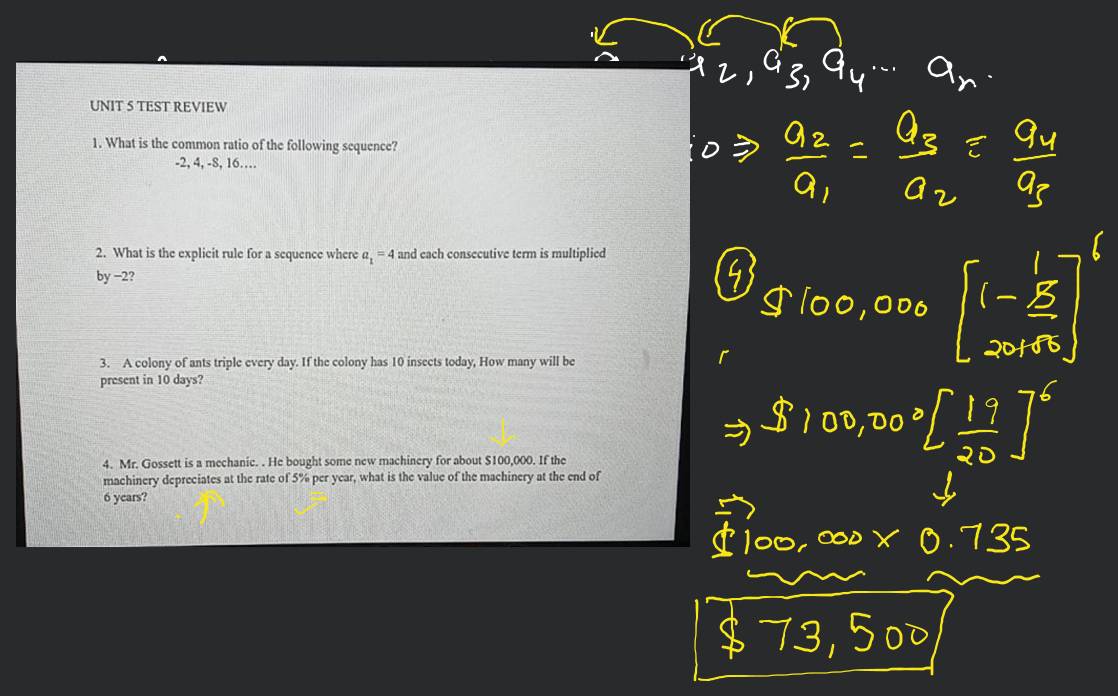 a2, a3, a4... an.
UNIT 5 TEST REVIEW
1. What is the common ratio of the following sequence?
-2, 4, -8, 16....
io ⇒ a2/a1 = a3/a2 = a4/a3
2. What is the explicit rule for a sequence where a1 = 4 and each consecutive term is multiplied
by -2?
3. A colony of ants triple every day. If the colony has 10 insects today, How many will be
present in 10 days?
4. Mr. Gossett is a mechanic. . He bought some new machinery for about $100,000. If the
machinery depreciates at the rate of 5% per year, what is the value of the machinery at the end of
6 years?
④ $100,000 [1 - 5/100]^6
1
20
⇒ $100,000 [19/20]^6
⇒ $100,000 × 0.735
$73,500